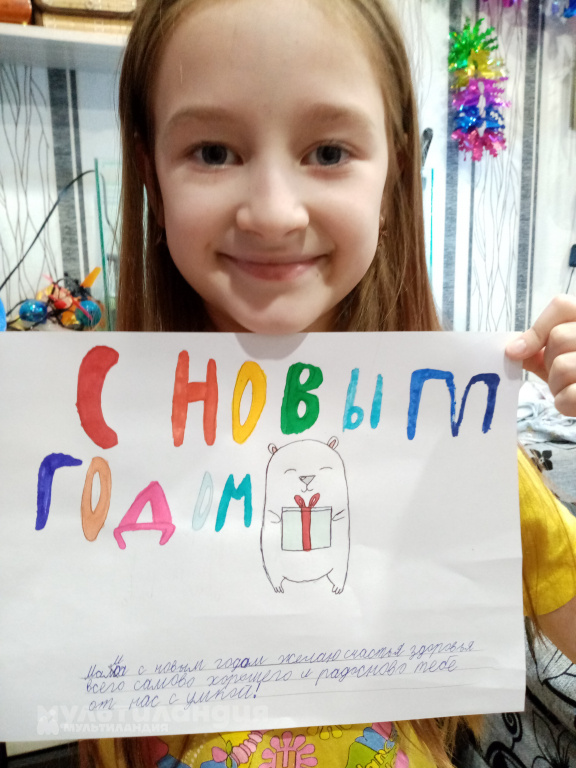 С НОВЫМ
ГОДОМ
с новым годом желаю счастья здоровья
всего самово хорошего и радосново тебе
от нас с
МУЛЬТИЛАНДИЯ
МУЛЬТИЛАНДИЯ